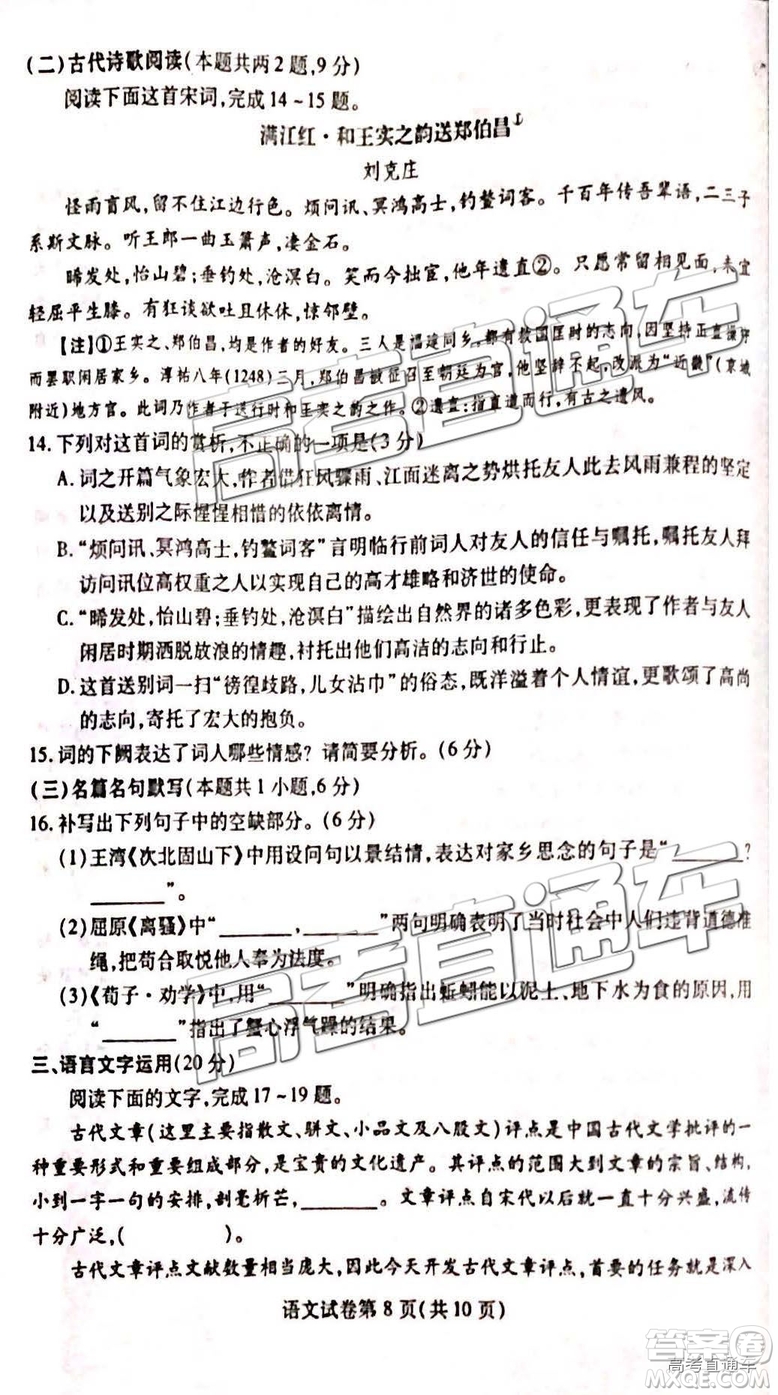 (二)古代诗歌阅读(本题共两2题,9分)
阅读下面这首宋词,完成14~15题。
满江红·和王实之韵送郑伯昌①
刘克庄
怪雨盲风,留不住江边行色。烦问讯、冥鸿高士,钓鳌词客。千百年传吾辈语,二三子
系斯文脉。听王郎一曲玉箫声,凄金石。
晞发处,怡山碧;垂钓处,沧溟白。笑而今拙宦,他年遗直②。只愿常留相见面,未宜
轻屈平生膝。有狂谈欲吐且休休,惊邻壁。
【注】①王实之、郑伯昌,均是作者的好友。三人是福建同乡。都有救国匡时的志向,因坚持正直操守
而罢职闲居家乡。淳祐八年(1248)三月,郑伯昌被征召至朝廷为官,他坚辞不起,改派为“近畿”(京城
附近)地方官。此词乃作者于送行时和王实之之作。②遗直:指直道而行,有古之遗风。
14.下列对这首词的赏析,不正确的一项是(3分)
A.词之开篇气象宏大,作者借狂风骤雨、江面迷离之势烘托友人此去风雨兼程的坚定
以及送别之际惺惺相惜的依依离情。
B.“烦问讯、冥鸿高士,钓鳌词客”言明临行前词人对友人的信任与嘱托,嘱托友人拜
访问讯位高权重之人以实现自己的高才雄略和济世的使命。
C.“晞发处,怡山碧;垂钓处,沧溟白”描绘出自然界的诸多色彩,更写出了作者与友人
闲居时期洒脱放浪的情趣,衬托出他们高洁的志向和行止。
D.这首送别词一扫“彷徨歧路,儿女沾巾”的俗态,既洋溢着个人情谊,更歌颂了高尚
的志向,寄托了宏大的抱负。
15.词的下阙表达了词人哪些情感?请简要分析。(6分)
(三)名篇名句默写(本题共1小题,6分)
16.补写出下列句子中的空缺部分。(6分)
(1)王湾《次北固山下》中用设问句以景结情,表达对家乡思念的句子是“______?
______”。
(2)屈原《离骚》中“______,______”两句明确表明了当时社会中人们违背道德准
绳,把苟合取悦他人奉为法度。
(3)《荀子·劝学》中,用“______”明确指出了蚯蚓能以泥土、地下水为食的原因,用
“______”指出了蟹心浮气躁的结果。
三、语言文字运用(20分)
阅读下面的文字,完成17~19题。
古代文章(这里主要指散文、骈文、小品文及八股文)评点是中国古代文学批评的一
种重要形式和重要组成部分,是宝贵的文化遗产。其评点的范围大到文章的宗旨、结构,
小到一字一句的安排,剖毫析芒,______。文章评点自宋代以后就一直十分兴盛,流传
十分广泛,( )。
古代文章评点文献数量相当庞大,因此今天开发古代文章评点,首要的任务就是深入
语文试卷第8页(共10页)
高考直通车
答案圈
高考直通车
MXQE.COM